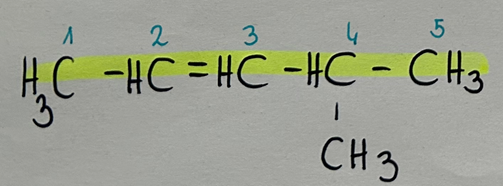 1 2 3 4 5
H₃C –HC =HC –HC – CH₃
CH₃